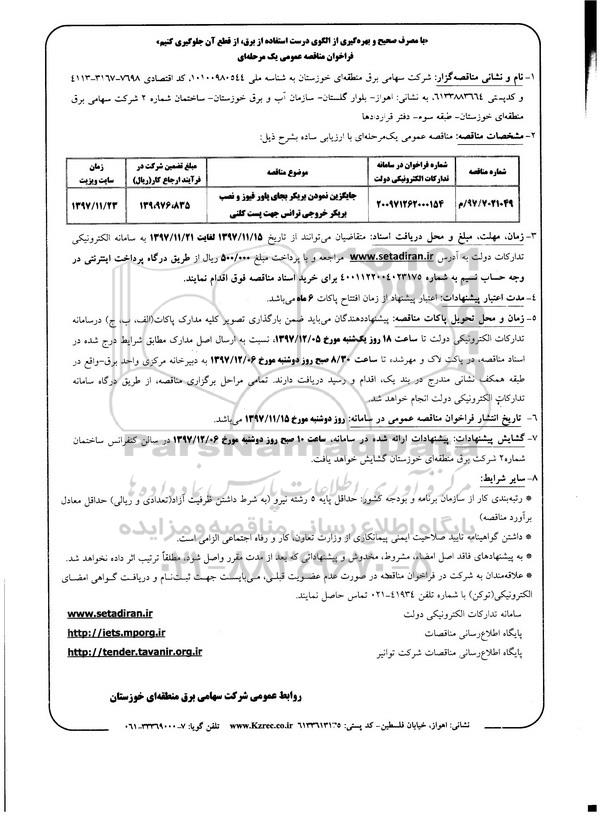 «با مصرف صحیح و بهره‌گیری از الگوی درست استفاده از برق، از قطع آن جلوگیری کنیم»
فراخوان مناقصه عمومی یک مرحله‌ای
۱- نام و نشانی مناقصه‌گزار: شرکت سهامی برق منطقه‌ای خوزستان به شناسه ملی ۱۰۱۰۰۹۸۰۵۴۴، کد اقتصادی ۷۶۹۸-۳۱۶۷-۴۱۱۳
و کدپستی ۶۱۳۳۸۸۳۶۶۴، به نشانی: اهواز- بلوار گلستان- سازمان آب و برق خوزستان- ساختمان شماره ۲ شرکت سهامی برق
منطقه‌ای خوزستان- طبقه سوم- دفتر قراردادها
۲- مشخصات مناقصه: مناقصه عمومی یک‌مرحله‌ای با ارزیابی ساده بشرح ذیل:
شماره مناقصه | شماره فراخوان در سامانه تدارکات الکترونیکی دولت | موضوع مناقصه | مبلغ تضمین شرکت در فرآیند ارجاع کار(ریال) | زمان سایت ویزیت
۹۷/۷۰۲۱۰۴۹/م | ۲۰۰۹۷۱۲۶۲۰۰۰۱۵۴ | جایگزین نمودن بریکر بجای پاور فیوز و نصب بریکر خروجی ترانس جهت پست گلنی | ۱۳۹،۹۷۶،۸۳۵ | ۱۳۹۷/۱۱/۲۳
۳- زمان، مهلت، مبلغ و محل دریافت اسناد: متقاضیان می‌توانند از تاریخ ۱۳۹۷/۱۱/۱۵ لغایت ۱۳۹۷/۱۱/۲۱ به سامانه الکترونیکی
تدارکات دولت به آدرس www.setadiran.ir مراجعه و با پرداخت مبلغ ۵۰۰/۰۰۰ ریال از طریق درگاه پرداخت اینترنتی در
وجه حساب نسیم به شماره ۴۰۰۱۱۲۲۰۰۴۰۲۳۱۷۵ برای خرید اسناد مناقصه فوق اقدام نمایند.
۴- مدت اعتبار پیشنهادات: اعتبار پیشنهاد از زمان افتتاح پاکات ۶ ماه می‌باشد.
۵- زمان و محل تحویل پاکات مناقصه: پیشنهاددهندگان می‌باید ضمن بارگذاری تصویر کلیه مدارک پاکات(الف، ب، ج) درسامانه
تدارکات الکترونیکی دولت تا ساعت ۱۸ روز یکشنبه مورخ ۱۳۹۷/۱۲/۰۵، نسبت به ارسال اصل مدارک مطابق شرایط درج شده در
اسناد مناقصه، در پاکت لاک و مهرشده تا ساعت ۸/۳۰ صبح روز دوشنبه مورخ ۱۳۹۷/۱۲/۰۶ به دبیرخانه مرکزی واحد برق-واقع در
طبقه همکف نشانی مندرج در بند یک، اقدام و رسید دریافت دارند. تمامی مراحل برگزاری مناقصه، از طریق درگاه سامانه
تدارکات الکترونیکی دولت انجام خواهد شد.
۶- تاریخ انتشار فراخوان مناقصه عمومی در سامانه: روز دوشنبه مورخ ۱۳۹۷/۱۱/۱۵ می‌باشد.
۷- گشایش پیشنهادات: پیشنهادات ارائه شده در سامانه، ساعت ۱۰ صبح روز دوشنبه مورخ ۱۳۹۷/۱۲/۰۶ در سالن کنفرانس ساختمان
شماره۲ شرکت برق منطقه‌ای خوزستان گشایش خواهد یافت.
۸- سایر شرایط:
* رتبه‌بندی کار از سازمان برنامه و بودجه کشور: حداقل پایه ۵ رشته نیرو (به شرط داشتن ظرفیت آزاد(تعدادی و ریالی) حداقل معادل
برآورد مناقصه)
* داشتن گواهینامه تایید صلاحیت ایمنی پیمانکاری از وزارت تعاون، کار و رفاه اجتماعی الزامی است.
* به پیشنهادهای فاقد اصل امضاء، مشروط، مخدوش و پیشنهاداتی که بعد از مدت مقرر واصل شود، مطلقاً ترتیب اثر داده نخواهد شد.
* علاقه‌مندان به شرکت در فراخوان مناقصه در صورت عدم عضویت قبلی، می‌بایست جهت ثبت‌نام و دریافت گواهی امضای
الکترونیکی(توکن) با شماره تلفن ۴۱۹۳۴-۰۲۱ تماس حاصل نمایند.
سامانه تدارکات الکترونیکی دولت www.setadiran.ir
پایگاه اطلاع‌رسانی مناقصات http://iets.mporg.ir
پایگاه اطلاع‌رسانی مناقصات شرکت توانیر http://tender.tavanir.org.ir
روابط عمومی شرکت سهامی برق منطقه‌ای خوزستان
نشانی: اهواز، خیابان فلسطین- کد پستی: ۶۱۳۳۶۱۳۱۳۵ www.Kzrec.co.ir تلفن گویا: ۷-۳۳۳۶۹۰۰۰-۰۶۱
ParsNamadData
مرکز فرآوری اطلاعات پارس نماد داده‌ها
پایگاه اطلاع رسانی مناقصه و مزایده
۰۲۱-۸۸۳۴۹۶۷۰-۵